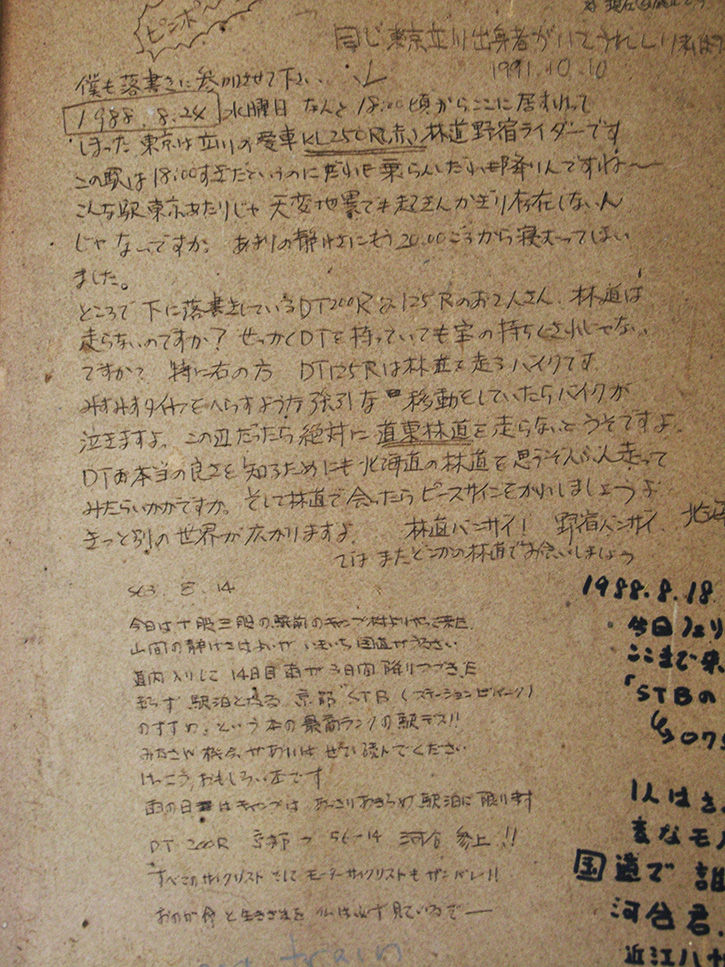 ピンポ
同じ東京立川出身者がいてうれしい
1991.10.10
僕も落書きに参加させて下さい。
1988.8.24 水曜日 なんと18:00頃からここに居すわって
しまった 東京は立川の愛車KL250R(赤)林道野宿ライダーです
この駅は18:00すぎだというのにだれも乗らんしだれも降りんですね〜
こんな駅東京あたりじゃ 天変地異でも起きんかぎり存在しないん
じゃないですか。 あまりの静けさにもう20:00ごろから寝むってしまい
ました。
ところで下に落書きしているDT200R &125Rのお2人さん、林道は
走らないのですか? せっかくDTを持っていても宝の持ちぐされじゃない
ですか? 特に右の方 DT125Rは林道を走るバイクです
みすみすタイヤをへらすような強引な 移動をしていたらバイクが
泣きますよ。この辺だったら絶対に道東林道を走らないとうそですよ。
DTの本当の良さを知るためにも北海道の林道を思うぞんぶん走って
みたらいかがですか。そして林道で会ったらピースサインをかわしましょうよ
きっと別の世界が広がりますよ。 林道バンザイ! 野宿バンザイ、北海
ではまたどこかの林道でお会いしましょう
S63. 8. 14
今日は十勝三股の駅前のキャンプ村よりやって来た
山間の静けさはよいが いまいち国道がうるさい
道内入りして14日目雨が3日間降りつづきた
駅泊となる 京都 "STB (ステーションビバーク)
のすすめ"という本の最高ランクの駅デス!!
みなさん機会があればぜひ読んでください
けっこうおもしろい本です
雨の日はキャンプはあっさりあきらめ駅泊に限ります
DT 200R 京都 つ 56-14 河合 参上!!
すべてのサイクリストそしてモーターサイクリストもガンバレ!!
おのが 生きざまを 必ず見ているでー
1988.8.18.
今日フェリ
ここまで来
「STBの
075
1人はさ
変なモ
国道で
河合君.
近江八
train